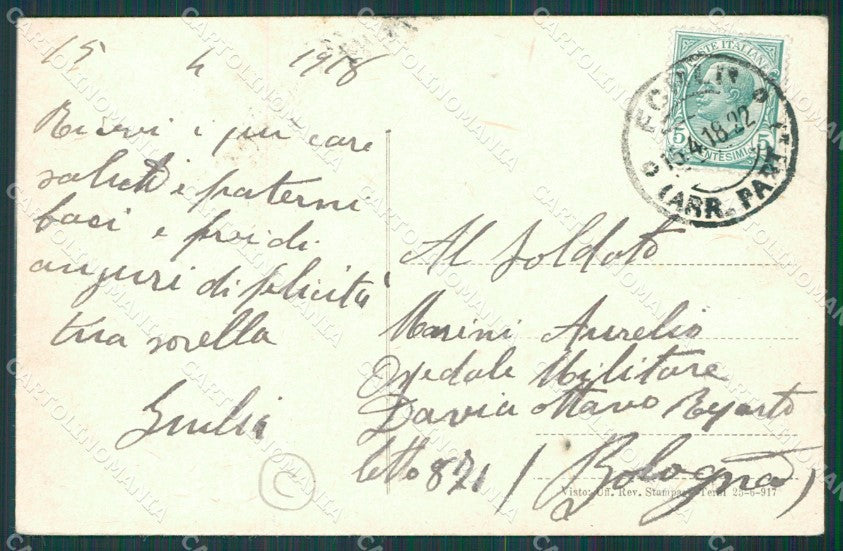 15 4 1918
Ricevi i piu cari
saluti e paterni
baci e
auguri di felicità
tua sorella
Giulia
POSTE ITALIANE
5 CENTESIMI 5
15.4.18.22
(ARR. PART.)
Al Soldato
Marini Aurelio
Ospedale Militare
Davia ottavo Reparto
letto 871
(Bologna)
Visto: Uff. Rev. Stampa. Terni 25-6-917
C
CARTOLINOMANIA